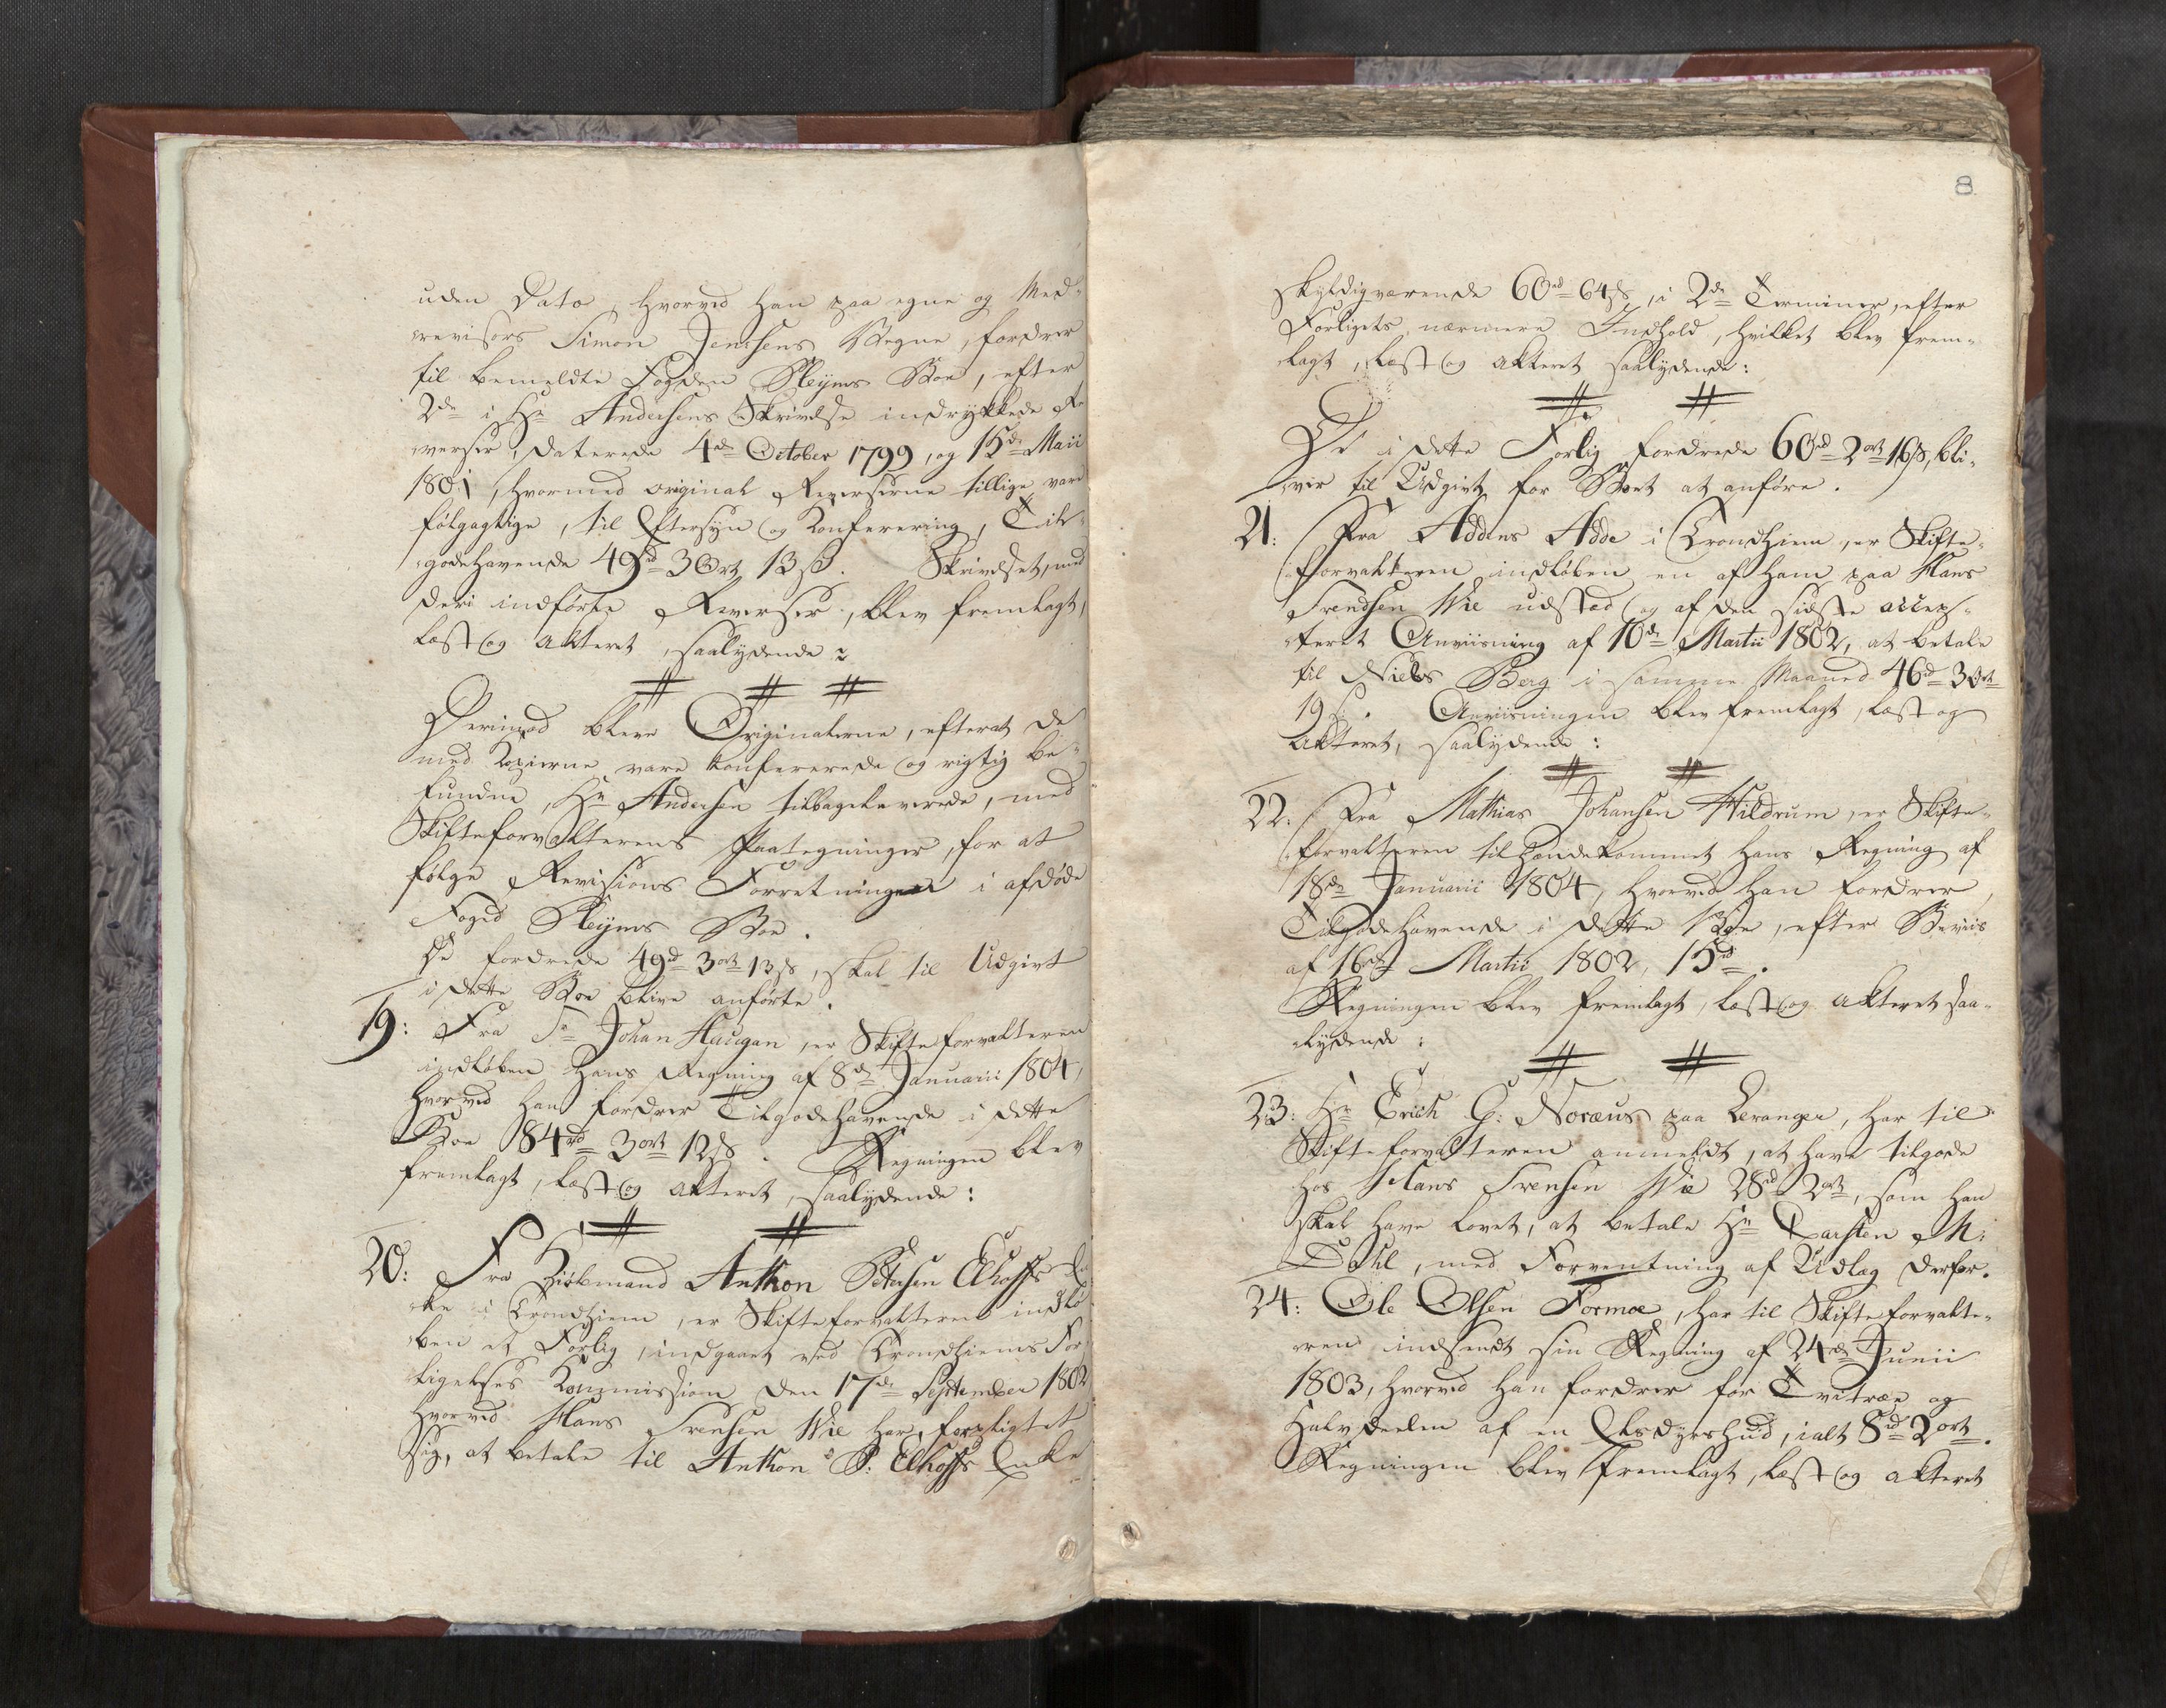 uden Dato, hvorved han paa egne og Med-
revisors Simon Jenssens Vegne, fordrer
til bemeldte Fogden Pleÿms Boe, efter
2de i Hr Andersens Skrivelse indrykkede Re
verser, daterede 4de October 1799, og 15de Maii
1801, hvormed original Reverserne tillige vare
følgagtige, til Eftersyn og Konferering, Til-
godehavende 49rd 3 Ort 13 ß. Skrivelset, med
deri indførte Reverser, blev fremlagt,
læst og akteret, saalydende:
Derimod bleve Originalerne, efterat de
med Kopierne vare konfererede og rigtig be-
fundne, Hr Andersen tilbageleverede, med
Skifteforvalterens Paategninger, for at
følge Revisions Forretningen i afdøde
Foged Pleÿms Boe.
De fordrede 49rd 3ort 13ß, skal til Udgivt
i dette Boe blive anførte.
19: Fra Sr Johan Haugan, er Skifteforvalteren
indløben hans Regning af 8de Januarii 1804,
hvorved han fordrer Tilgodehavende i dette
Boe 84rd 3ort 12ß. Regningen blev
fremlagt, læst og akteret, saalydende:
20: Fra Anthon Petersen Elhoffs En
ke i Trondhiem, er Skifteforvalteren indlø
ben et Forlig, indgaaet ved Trondhiems For
ligelses Kommission den 17de September 1802
hvorved Hans Svensen Wie har forpligtet
sig, at betale til Anthon P: Elhoffs Enke
8
skyldigværende 60rd 64ß, i 2de Terminer, efter
Forligets nærmere Indhold, hvilket blev frem-
lagt, læst og akteret saalydende:
De i dette Forlig fordrede 60rd 2ort 16ß, bli-
ver til Udgivt for Boet at anføre.
21: Fra Addens Adde i Trondhiem, er Skifte-
forvalteren indløben en af ham paa Hans
Svendsen Wie udstæd og af den sidste accep-
teret Anviisning af 10de Martii 1802, at betale
til Niels Berg i samme Maaned 46rd 3ort
19ß. Anviisningen blev fremlagt, læst og
akteret, saalydende:
22: Fra Mathias Johansen Hildrum, er Skifte-
forvalteren tilhændekommet hans Regning af
18de Januarii 1804, hvorved han fordrer,
Tilgodehavende i dette Boe, efter Beviis
af 16de Martii 1802, 15rd.
Regningen blev fremlagt, læst og akteret saa-
lydende:
23: Hr Erich G: Noræus paa Levanger, har til
Skifteforvalteren anmeldt, at have tilgode
hos Hans Svensen Wie 28rd 2ort, som han
skal have lovet, at betale Hr Carsten M:
Dahl, med Forventning af Udlæg derfor.
24: Ole Olsen Formoe, har til Skifteforvalte-
ren indsendt sin Regning af 24de Junii
1803, hvorved han fordrer for Tvitræe og
Halvdeelen af en Elsdyrshud, ialt 8rd 2ort.
Regningen blev fremlagt, læst og akteret